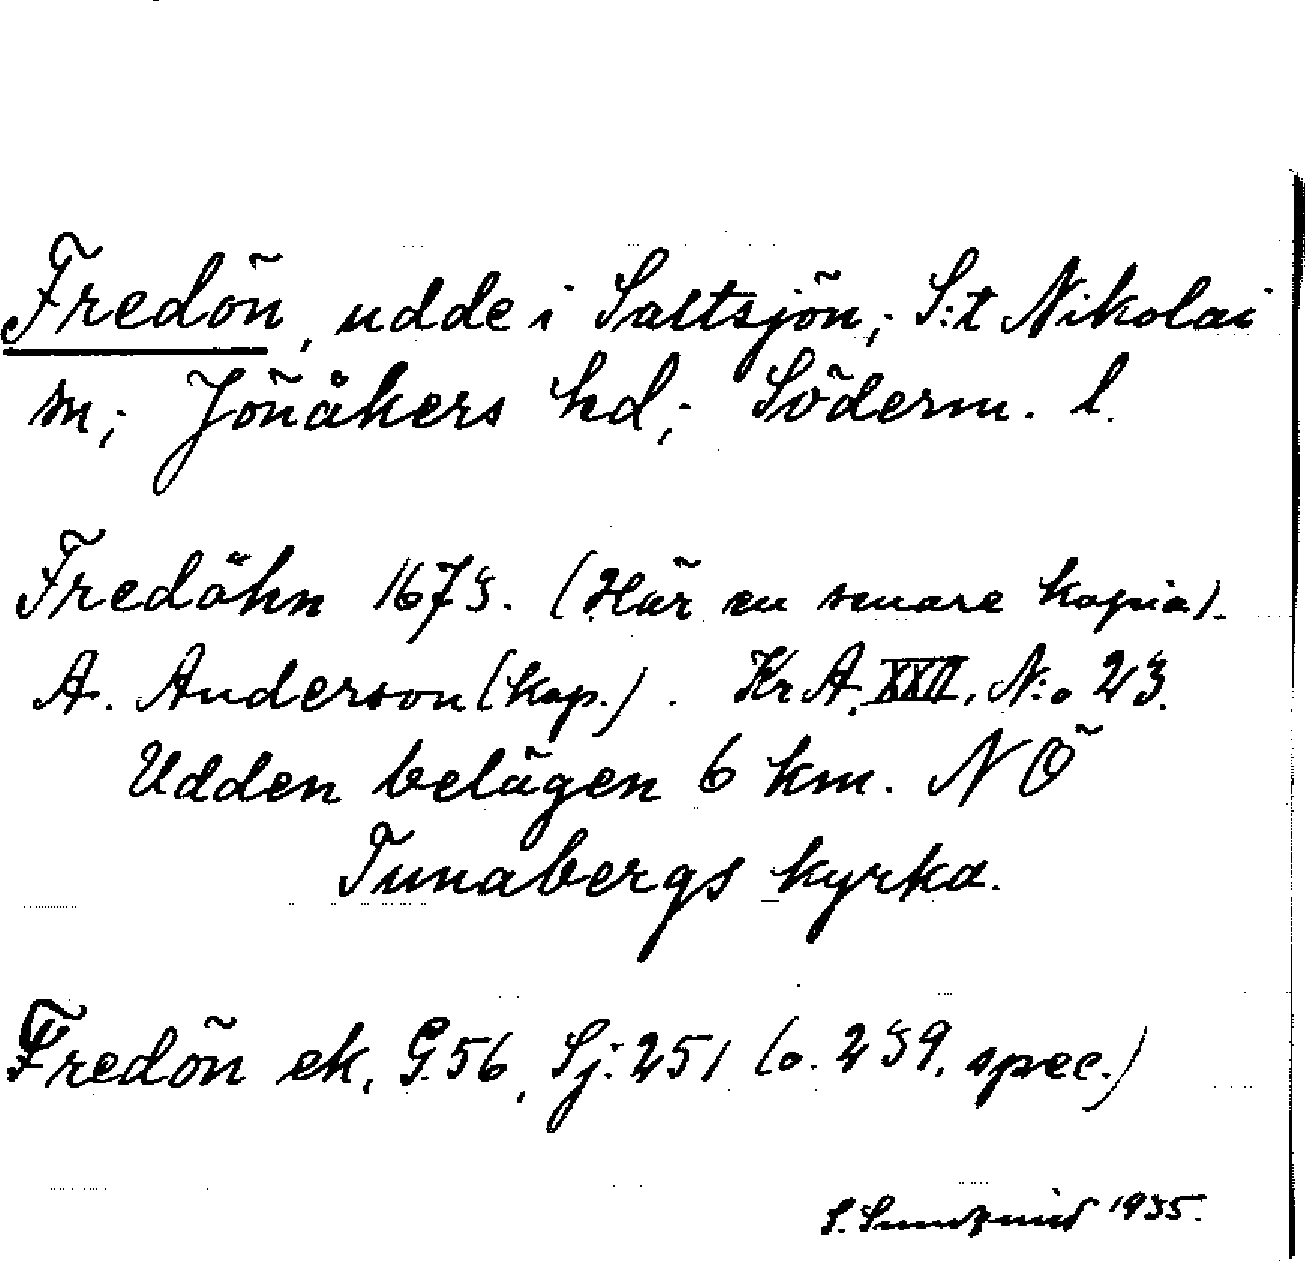 Fredön, udde i Saltsjön; S:t Nikolai
sn; Jönåkers hd; Söderm. l.
Fredöhn 1673. (Här en senare kopia).
A. Anderson (kop.). Kr A. XXII. N:o 23.
Udden belägen 6 km. NÖ
Tunabergs kyrka.
Fredön ek. G.56, Sj: 251 (o. 239. spec.)
S. Sundqvist 1935.